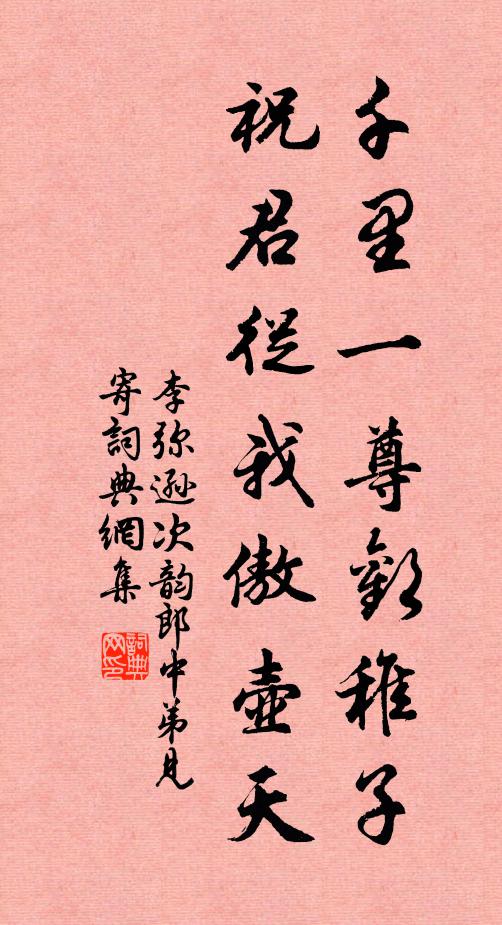 千里一尊歡稚子
祝君從我傲壺天
李弥遜次韵郎中弟見
寄詞典網集
詞典
网印